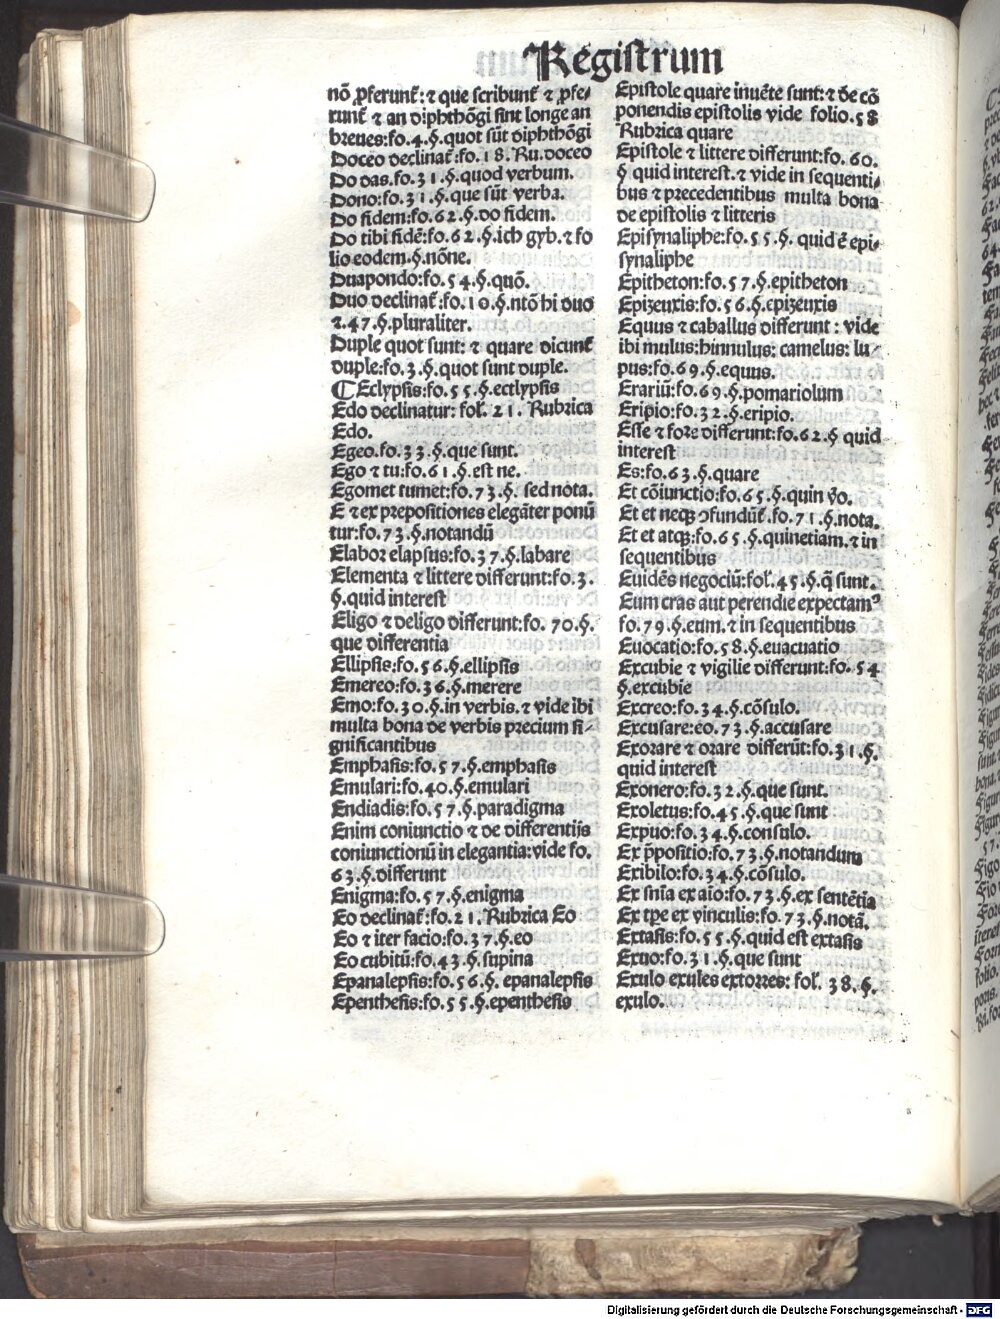 Registrum
nō ꝓferunt᷑: ⁊ que scribunt᷑ ⁊ ꝓfe-
runt᷑ ⁊ an diphthōgi sint longe an
breues:fo.4.§.quot sūt diphthōgi
Doceo declinat᷑:fo.18.Ru.doceo
Do das.fo.31.§.quod verbum.
Dono:fo.31.§.que sūt verba.
Do fidem:fo.62.§.do fidem.
Do tibi fidē:fo.62.§.ich gyb.⁊ fo
lio eodem.§.nōne.
Duapondo:fo.54.§.quō.
Duo declinat᷑:fo.10.§.ntō hi duo
⁊.47.§.pluraliter.
Duple quot sunt: ⁊ quare dicunt᷑
duple:fo.3.§.quot sunt duple.
¶ Eclypsis:fo.55.§.ectlypsis
Edo declinatur: fol. 21. Rubrica
Edo.
Egeo.fo.33.§.que sunt.
Ego ⁊ tu:fo.61.§.est ne.
Egomet tumet:fo.73.§. sed nota.
E ⁊ ex prepositiones elegāter ponū
tur:fo.73.§.notandū
Elabor elapsus:fo.37.§.labare
Elementa ⁊ littere differunt:fo.3.
§.quid interest
Eligo ⁊ deligo differunt:fo. 70.§.
que differentia
Ellipsis:fo.56.§.ellipsis
Emereo:fo.36.§.merere
Emo:fo.30.§.in verbis.⁊ vide ibi
multa bona de verbis precium si-
gnificantibus
Emphasis:fo.57.§.emphasis
Emulari:fo.40.§.emulari
Endiadis:fo.57.§.paradigma
Enim coniunctio ⁊ de differentijs
coniunctionū in elegantia:vide fo.
63.§.differunt
Enigma:fo.57.§.enigma
Eo declinat᷑:fo.21.Rubrica Eo
Eo ⁊ iter facio:fo.37.§.eo
Eo cubitū:fo.43.§.supina
Epanalepsis:fo.56.§. epanalepsis
Epenthesis:fo.55.§.epenthesis
Epistole quare inuēte sunt:⁊ de cō
ponendis epistolis vide folio.58
Rubrica quare
Epistole ⁊ littere differunt:fo.60.
§ quid interest.⁊ vide in sequenti-
bus ⁊ precedentibus multa bona
de epistolis ⁊ litteris
Episynaliphe:fo.55.§. quid ē epi-
synaliphe
Epitheton:fo.57.§.epitheton
Epizeuxis:fo.56.§.epizeuxis
Equus ⁊ caballus differunt: vide
ibi mulus:hinnulus: camelus: lu-
pus:fo.69.§.equus.
Erariū:fo.69.§.pomariolum
Eripio:fo.32.§.eripio.
Esse ⁊ fore differunt:fo.62.§ quid
interest
Es:fo.63.§.quare
Et cōiunctio:fo.65.§.quin v̄o.
Et et neqꝫ ꝯfundūt᷑.fo.71.§.nota.
Et et atqꝫ:fo.65.§.quinetiam.⁊ in
sequentibus
Euidēs negociū:fol.45.§.q̄ sunt.
Eum cras aut perendie expectamꝰ
fo.79.§.eum.⁊ in sequentibus
Euocatio:fo.58.§.euacuatio
Excubie ⁊ vigilie differunt:fo.54
§.excubie
Excreo:fo.34.§.cōsulo.
Excusare:eo.73.§.accusare
Exorare ⁊ orare differūt:fo.31.§.
quid interest
Exonero:fo.32.§.que sunt.
Exoletus:fo.45.§.que sunt
Expuo:fo.34.§.consulo.
Ex p̄positio:fo.73.§.notandum
Exibilo:fo.34.§.cōsulo.
Ex sn̄ia ex aīo:fo.73.§.ex sentētia
Ex tp̄e ex vinculis:fo.73.§.notā.
Extasis:fo.55.§.quid est extasis
Exuo:fo.31.§.que sunt
Exulo exules extorres: fol. 38.§.
exulo.
Digitalisierung gefördert durch die Deutsche Forschungsgemeinschaft - DFG